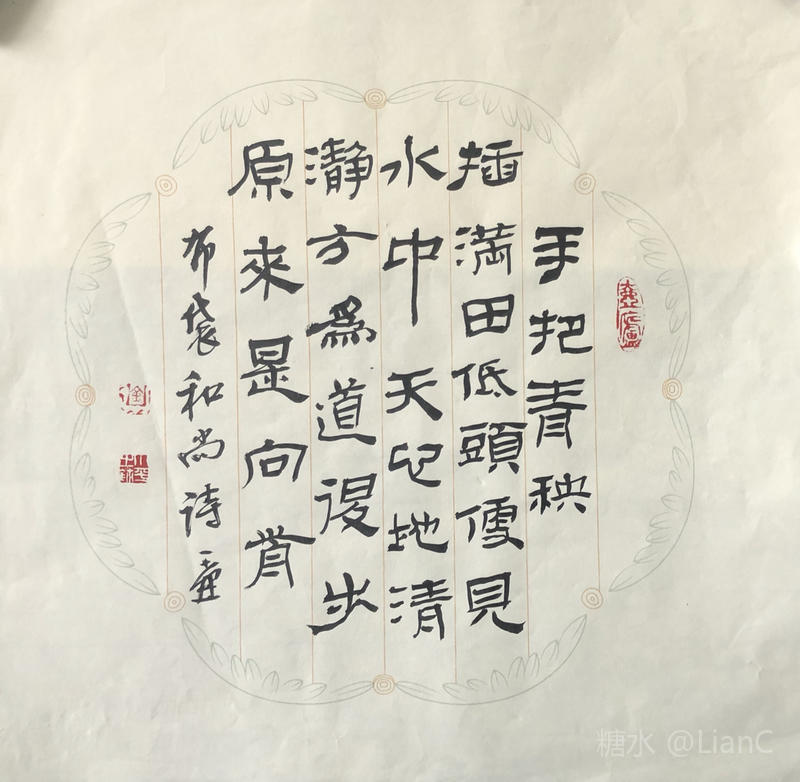 手把青秧
插満田低頭便見
水中天心地清
瀞方爲道退步
原來是向歬
布袋和尚诗壺
壺廬
糖水 @LianC